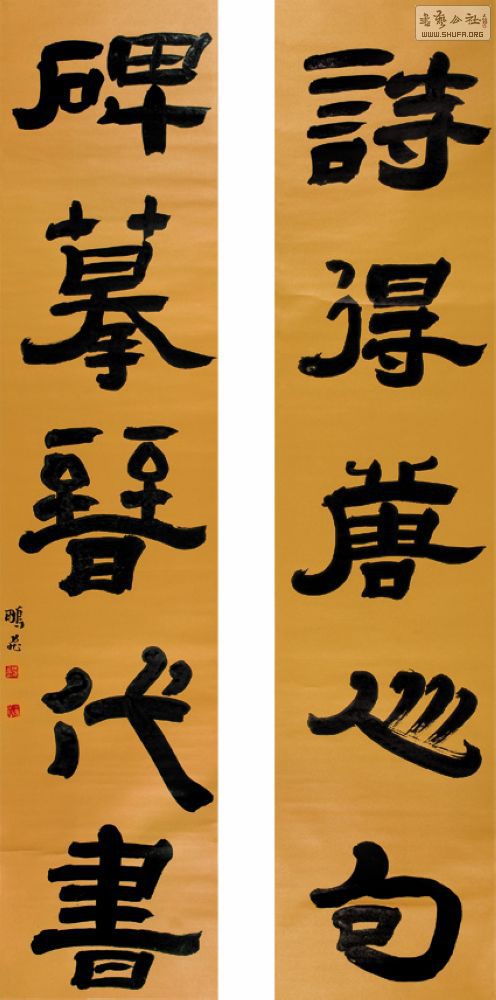 書藝公社
WWW.SHUFA.ORG
詩得唐人句
碑摹晉代書
鵬飛